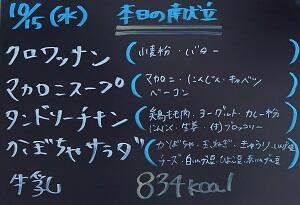 10/15(水) 本日の献立
クロワッサン (小麦粉・バター
マカロニスープ (マカロニ・にんじん・キャベツ
ベーコン
タンドリーチキン (鶏もも肉・ヨーグルト・カレー粉
にんにく・生姜・(付)ブロッコリー
かぼちゃサラダ (かぼちゃ・玉ねぎ・きゅうり・
チーズ・白いんげん豆・ひよこ豆・赤いんげん豆
牛乳 834kcal